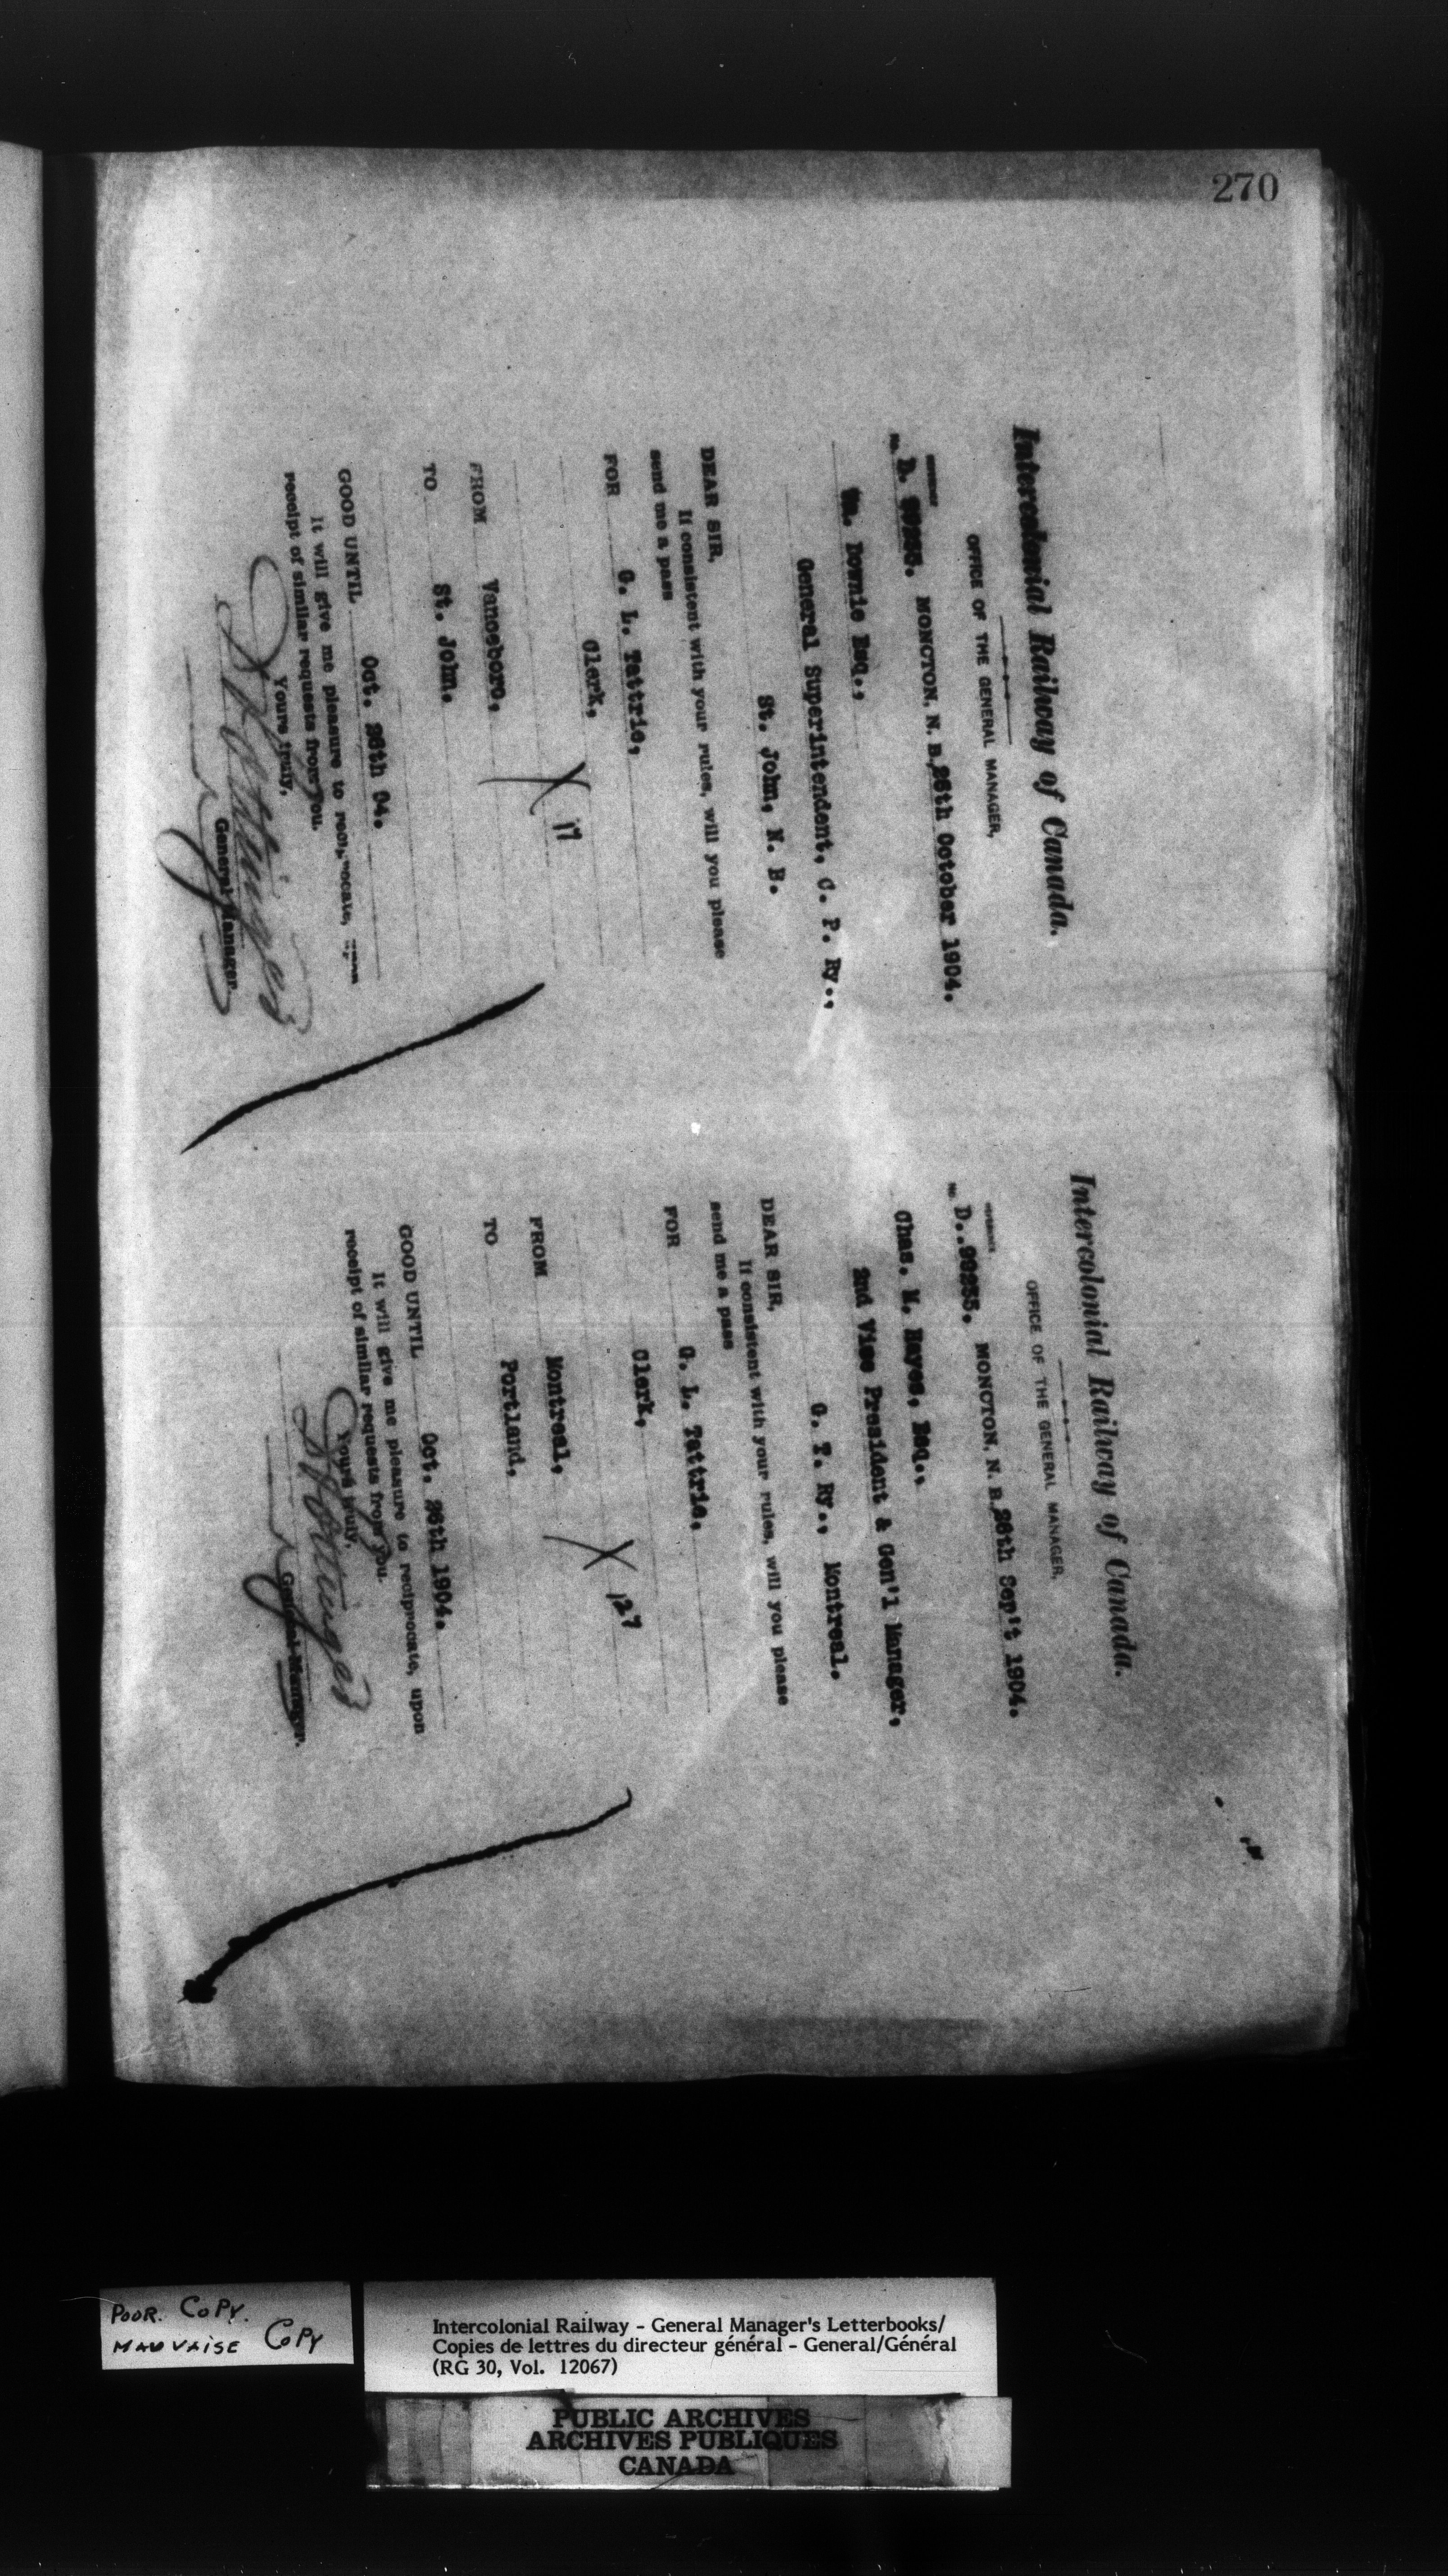 270
Intercolonial Railway of Canada.
OFFICE OF THE GENERAL MANAGER,
No. D. MONCTON, N. B. 26th October 1904.
Wm. Downie Esq.,
General Superintendent, C. P. Ry.,
St. John, N. B.
DEAR SIR,
If consistent with your rules, will you please
send me a pass
FOR G. L. Tattrie,
Clerk,
X 17
FROM Vanceboro,
TO St. John.
GOOD UNTIL Oct. 28th 04.
It will give me pleasure to reciprocate, upon
receipt of similar requests from you.
Yours truly,
General Manager.
Intercolonial Railway of Canada.
OFFICE OF THE GENERAL MANAGER,
REFERENCE.
No. D..90255. MONCTON, N. B. 26th Sep't 1904.
Chas. M. Hayes, Esq.,
2nd Vice President & Gen'l Manager,
G. T. Ry., Montreal.
DEAR SIR,
If consistent with your rules, will you please
send me a pass
FOR G. L. Tattrie,
Clerk,
X 127
FROM Montreal,
TO Portland,
GOOD UNTIL Oct. 26th 1904.
It will give me pleasure to reciprocate, upon
receipt of similar requests from you.
Yours truly,
General Manager.
POOR. COPY.
MAUVAISE COPY
Intercolonial Railway - General Manager's Letterbooks/
Copies de lettres du directeur général - General/Général
(RG 30, Vol. 12067)
PUBLIC ARCHIVES
ARCHIVES PUBLIQUES
CANADA